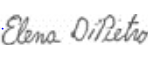 Elena DiPietro